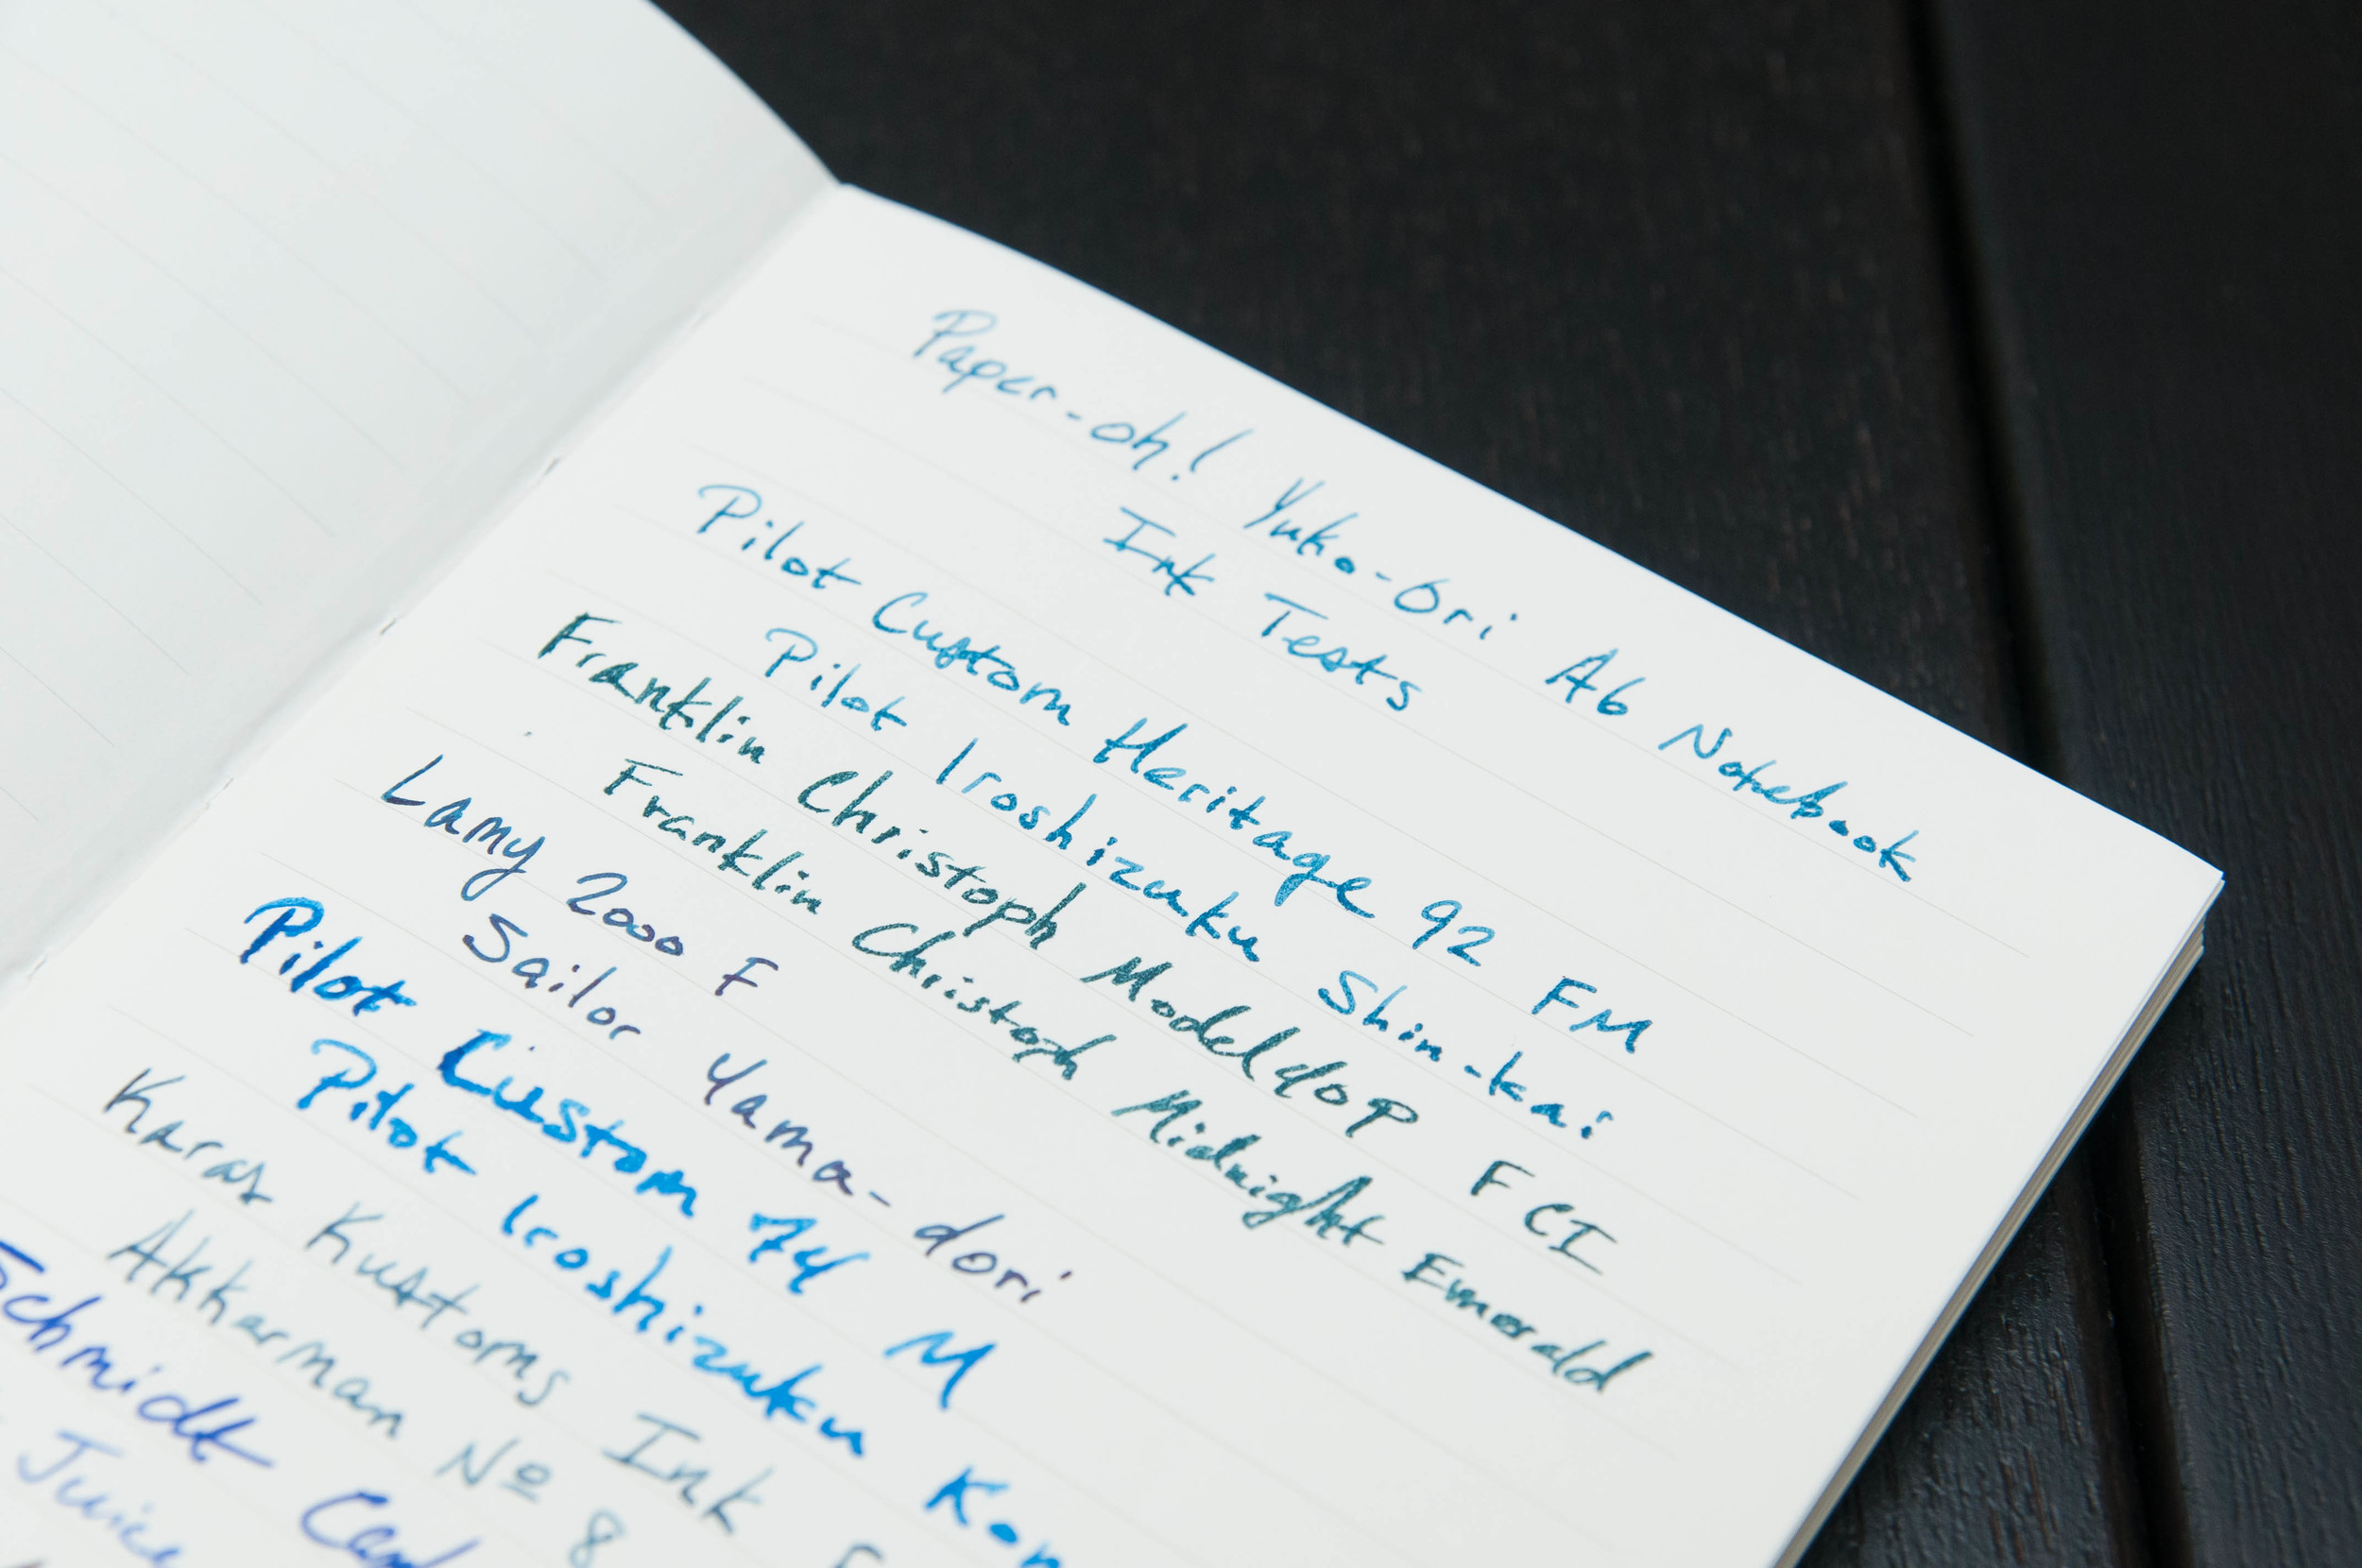 Paper-oh! Yuko-Ori A6 Notebook
Ink Tests
Pilot Custom Heritage 92 FM
Pilot Iroshizuku Shin-kai
Franklin Christoph Model 40P F CI
Franklin Christoph Midnight Emerald
Lamy 2000 F
Sailor Yama-dori
Pilot Custom 74 M
Pilot Iroshizuku Kon
Karas Kustoms Ink F
Akkerman Nº 8
Schmidt
Juice